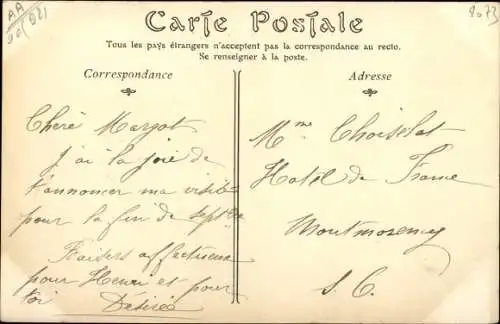 Carte Postale
Tous les pays étrangers n'acceptent pas la correspondance au recto.
Se renseigner à la poste.
Correspondance
Adresse
Cherè Margot
J'ai la joie de
t'annoncer ma visite
pour la fin de sept
Baisers affectueux
pour Henri et pour
toi Désirée
Mme Choiselat
Hotel de France
Montmorency
S. O.